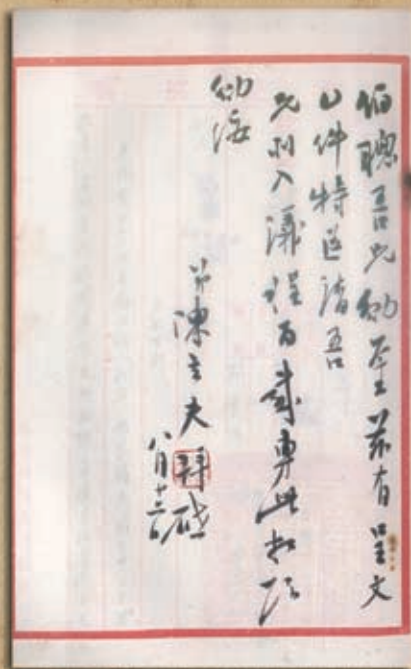 伯聰吾兄勛鑒茲有呈文
乙件特送請吾
兄列入議程為感專此敬頌
勛綏
弟陳立夫拜啟
八月十三日